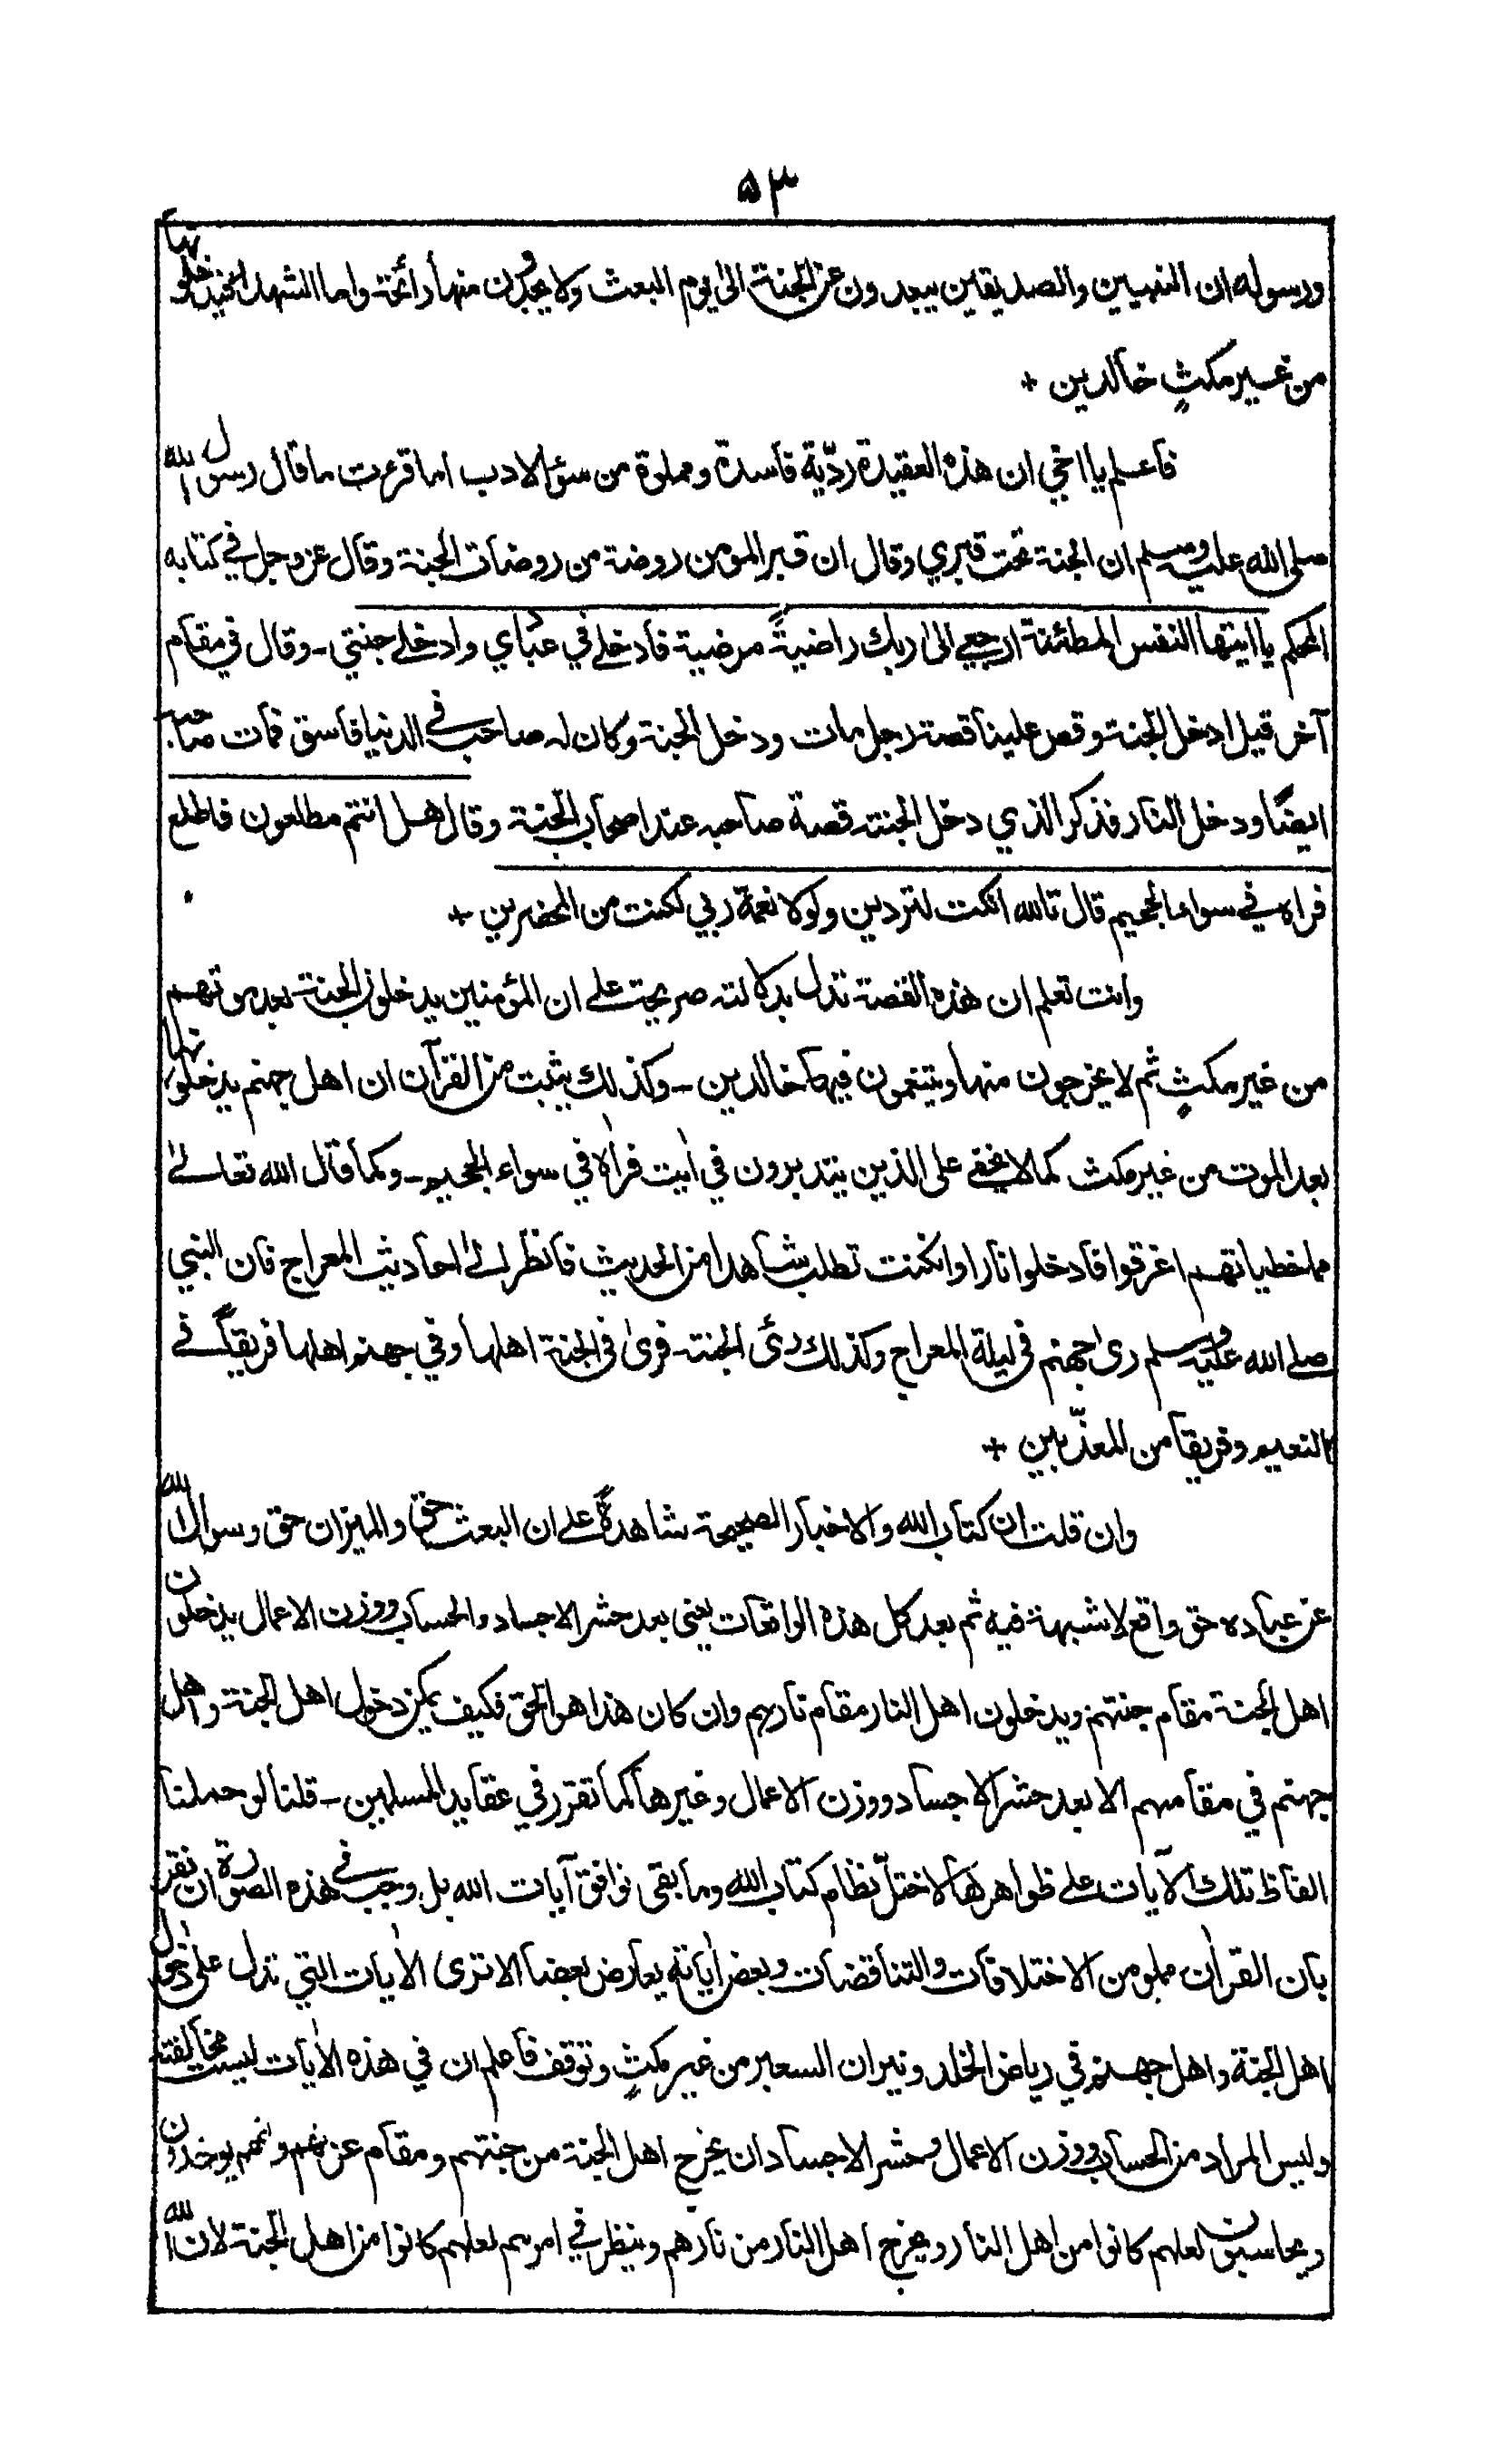 ۵۳
ورسوله ان النبيين والصديقين يبعدون عن الجنة الى يوم البعث ولا يجدون منها رائحة واما الشهداء فيدخلونها
من غير مكثٍ خالدين +
فاعلم يا اخي ان هذه العقيدة ردّية فاسدة ومملوة من سوء الادب اما قرءت ما قال رسول الله
صلى الله عليه وسلم ان الجنة تحت قبري وقال ان قبر المومن روضة من روضات الجنة وقال عز وجل في كتابه
المحكم يا ايتها النفس المطمئنة ارجعي الى ربك راضيةً مرضية فادخلي في عبادي وادخلي جنتي - وقال في مقام
آخر قيل ادخل الجنة وقص علينا قصة رجل مات ودخل الجنة وكان له صاحب في الدنيا فاسق فمات صاحبه
ايضًا ودخل النار فذكر الذي دخل الجنة قصة صاحبه عند اصحاب الجنة وقال هل انتم مطلعون فاطلع
فراه في سواء الجحيم قال تالله ان كدت لتردين ولولا نعمة ربي لكنت من المحضرين +
وانت تعلم ان هذه القصة تدل بدلالة صريحة على ان المؤمنين يدخلون الجنة بعد موتهم
من غير مكثٍ ثم لا يخرجون منها ويتنعمون فيها خالدين - وكذلك يثبت من القرآن ان اهل جهنم يدخلونها
بعد الموت من غير مكث كما لا يخفى على الذين يتدبرون في اٰيت فراٰه في سواء الجحيم - وكما قال الله تعالىٰ
مما خطياتهم اغرقوا فادخلوا نارا وان كنت تطلب شاهدا من الحديث فانظر الى احاديث المعراج فان النبي
صلى الله عليه وسلم رىٰ جهنم في ليلة المعراج وكذلك رئى الجنة فرىٰ في الجنة اهلها وفي جهنم اهلها فريقًا في
النعيم وفريقا من المعذّبين +
وان قلت ان كتاب الله والاخبار الصحيحة شاهدةً على ان البعث حق والميزان حق وسوال الله
عن عباده حق واقع لا شبهة فيه ثم بعد كل هذه الواقعات يعنى بعد حشر الاجساد والحساب ووزن الاعمال يدخلون
اهل الجنة مقام جنتهم ويدخلون اهل النار مقام نارهم وان كان هذا هو الحق فكيف يمكن دخول اهل الجنة واهل
جهنم في مقامهم الا بعد حشر الاجساد ووزن الاعمال وغيرها كما تقرر في عقايد المسلمين - قلنا لو حملنا
الفاظ تلك الآيات على ظواهرها لاختلّ نظام كتاب الله وما بقى توافق آيات الله بل وجب في هذه الصورة ان نقر
بان القراٰن مملو من الاختلافات والتناقضات وبعض اٰياته يعارض بعضا الا ترى الاٰيات التي تدل علىٰ دخول
اهل الجنة واهل جهنم في رياض الخلد ونيران السعير من غير مكثٍ وتوقف فاعلم ان في هذه الاٰيات ليست مخالفة
وليس المراد من الحساب ووزن الاعمال وحشر الاجساد ان يخرج اهل الجنة من جنتهم ومقام عزتهم وانهم يوخذون
ويحاسبون لعلهم كانوا من اهل النار ويخرج اهل النار من نارهم وينظر في امرهم لعلهم كانوا من اهل الجنة لان الله